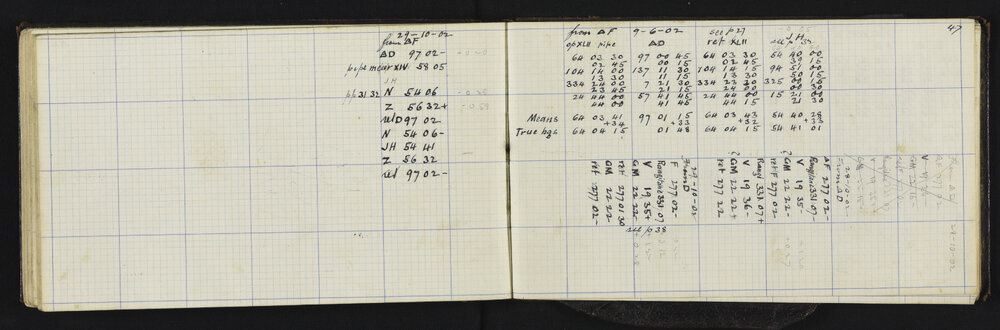 29-10-02
from ΔF
ΔD 97 02-
pipe near XIV 58 05
JH
pp 31 32 N 54 06
Z 56 32+
relD 97 02-
N 54 06-
JH 54 41
Z 56 32
ret 97 02-
47
from ΔF 9-6-02 see p 27 J.H.
op XLII pipe ΔD ret XLII see p 32
64 03 30 97 00 45 64 03 30 54 40 00
02 45 00 15 02 45 39 15
104 14 00 137 11 30 104 14 15 94 51 00
13 30 11 15 13 30 50 15
334 24 00 7 21 30 334 23 30 325 00 00
23 45 21 15 24 00 00 30
24 44 00 57 41 45 24 44 00 15 21 00
44 00 41 45 44 15 21 30
Means 64 03 41 97 01 15 64 03 43 54 40 28
+34 +33 +32 +33
True bgs 64 04 15 01 48 64 04 15 54 41 01
29-10-02
from D
F 277 02-
Rangiora 331 07
V 19 35+
GM 22 22-
GM 22 22
ret 277 01 30
ret 277 02-
see p 38
28-10-02
from ΔD
ΔF 277 02-
Rangiora 331 07-
V 19 35-
? GM 22 22-
ret F 277 02-
Rangi 331 07+
V 19 36-
? GM 22 22+
ret 277 22
29-10-02